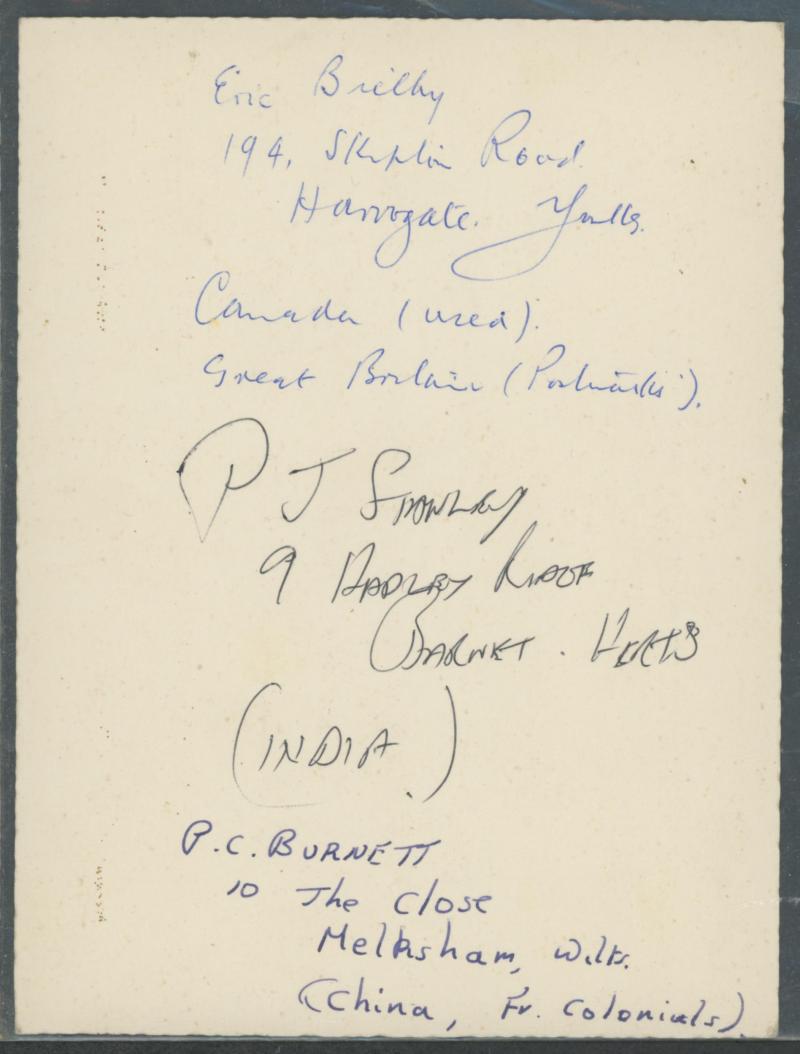 Eric Bielby
194, Skipton Road
Harrogate. Yorks.
Canada (used).
Great Britain (Postmarks).
P J STANLEY
9 HADLEY RIDGE
BARNET. HERTS
(INDIA.)
P.C. BURNETT
10 The Close
Melksham, Wilts.
(China, Fr. Colonials)